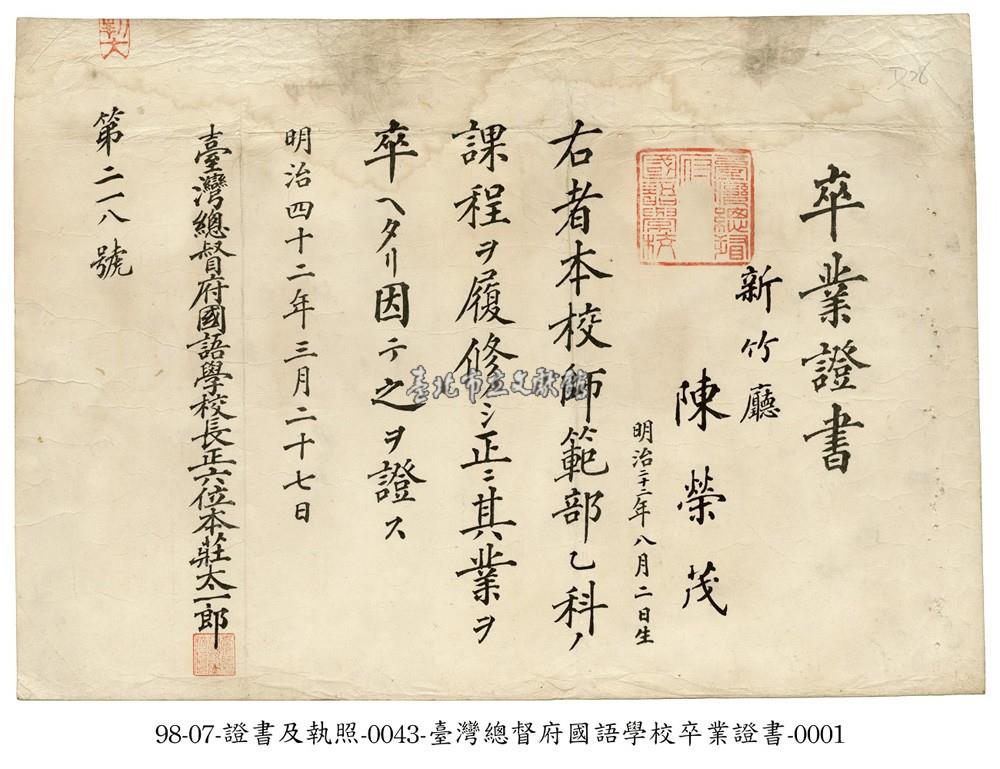 卒業證書
臺灣總督府國語學校
新竹廳
陳榮茂
明治二十二年八月二日生
右者本校師範部乙科ノ
課程ヲ履修シ正ニ其業ヲ
卒ヘタリ因テ之ヲ證ス
明治四十二年三月二十七日
臺灣總督府國語學校長正六位本莊太一郎
第二一八號
D26
臺北市立文獻館
98-07-證書及執照-0043-臺灣總督府國語學校卒業證書-0001